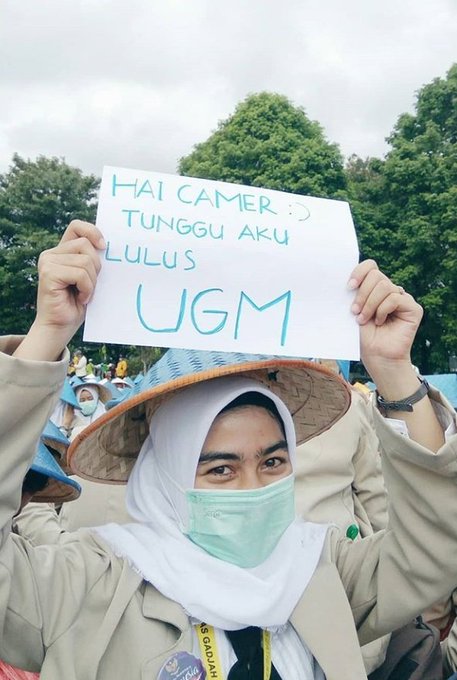 HAI CAMER :)
TUNGGU AKU
LULUS
UGM
AS GADJAH